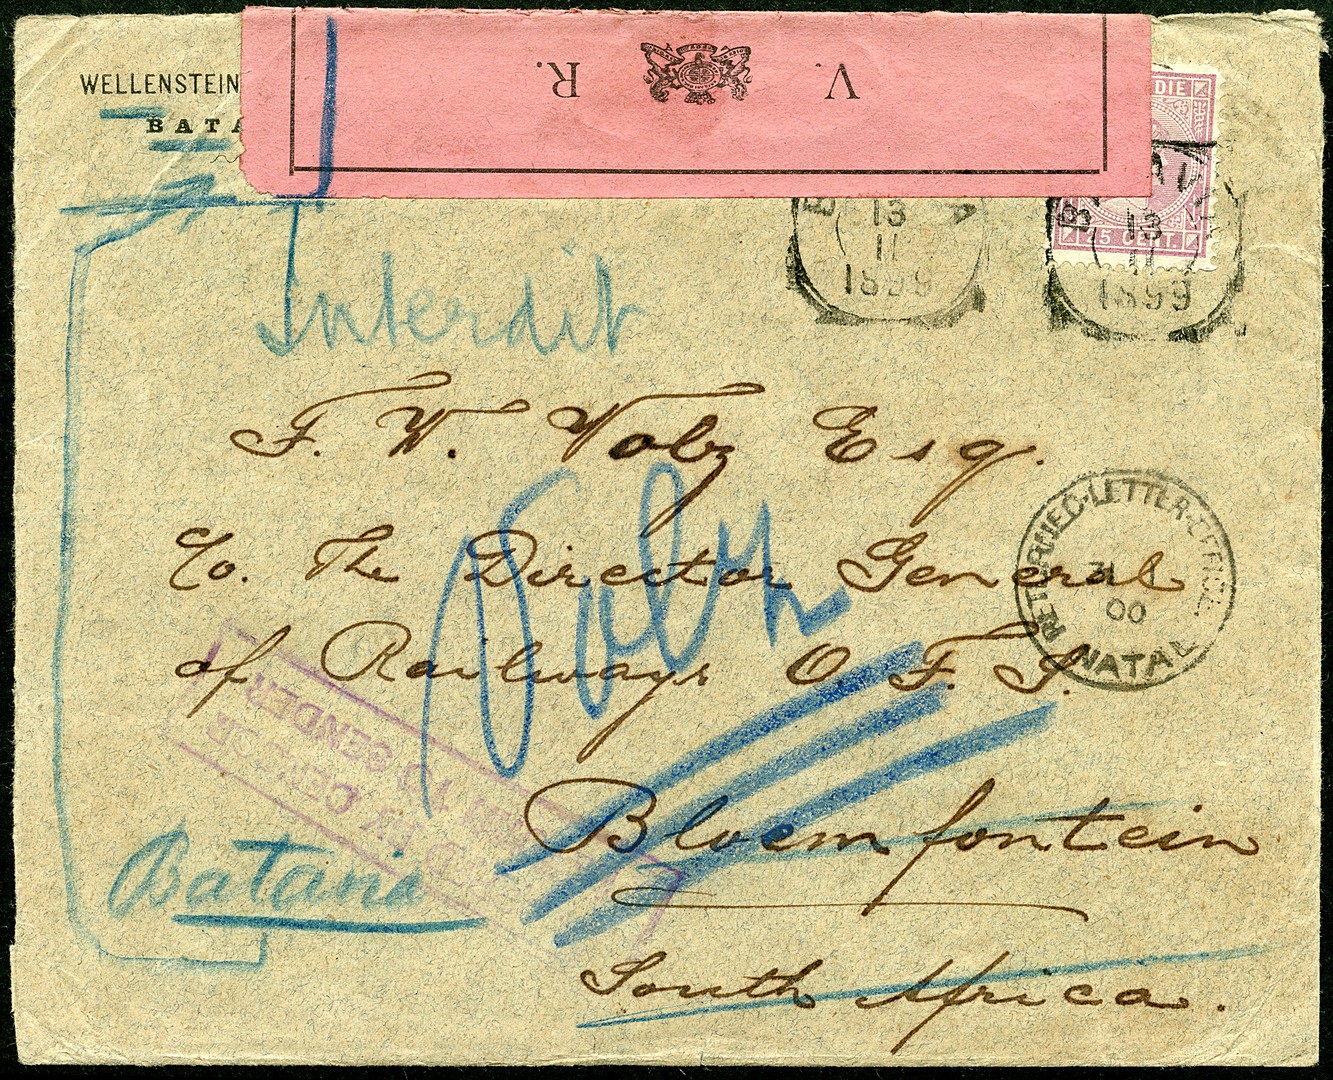 V. R.
WELLENSTEIN
BATA
DIE
25 CENT.
13
11
1899
BATAVIA
13
11
1899
Interdit
F. W. Volz Esq.
c/o. The Director General
of Railways O. F. S.
Bloemfontein
South Africa.
Volz
RETURNED-LETTER-OFFICE.
31 1
00
NATAL
BY CENSOR
TO SENDER
Batavia